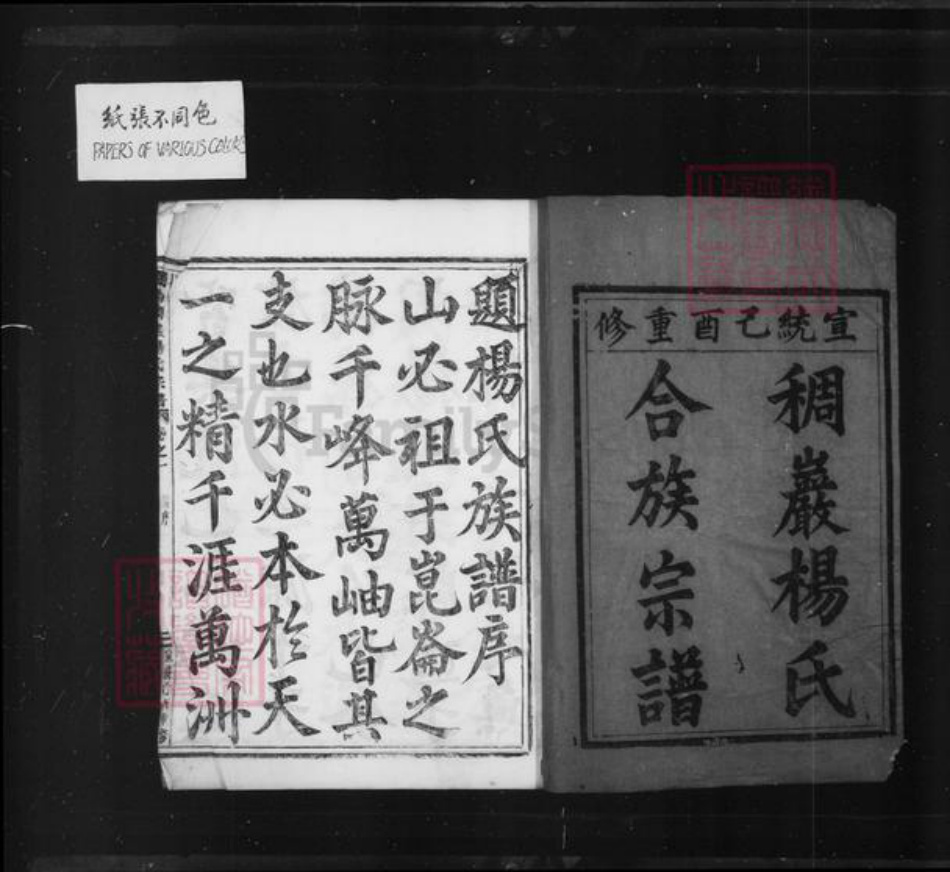 紙張不同色
PAPERS OF VARIOUS COLORS
宣統己酉重修
稠巖楊氏
合族宗譜
題楊氏族譜序
山必祖于崑崙之
脉千峰萬岫皆其
支也水必本於天
一之精千涯萬洲
FamilyS